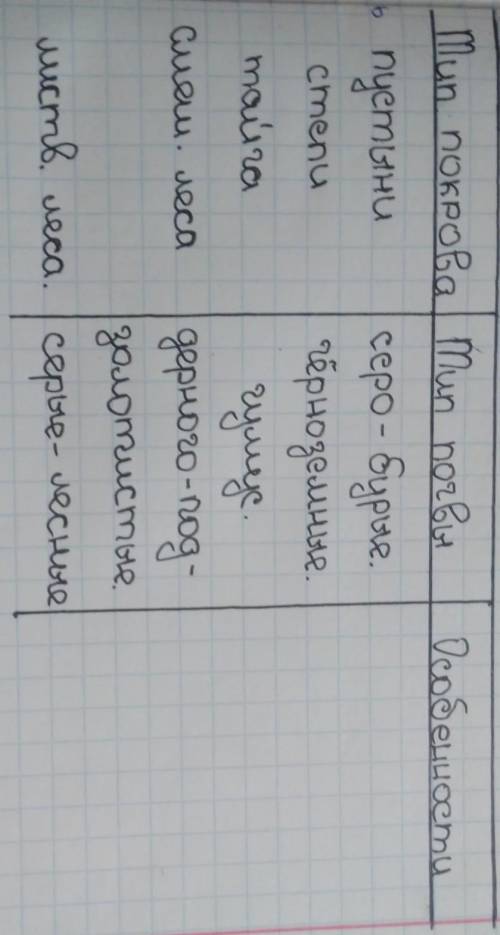 Тип покрова Тип почвы Особенности
пустыни серо-бурые.
степи чёрноземные.
тайга гумус.
смеш. леса дерного-под-
золотистые.
листв. леса. серые-лесные